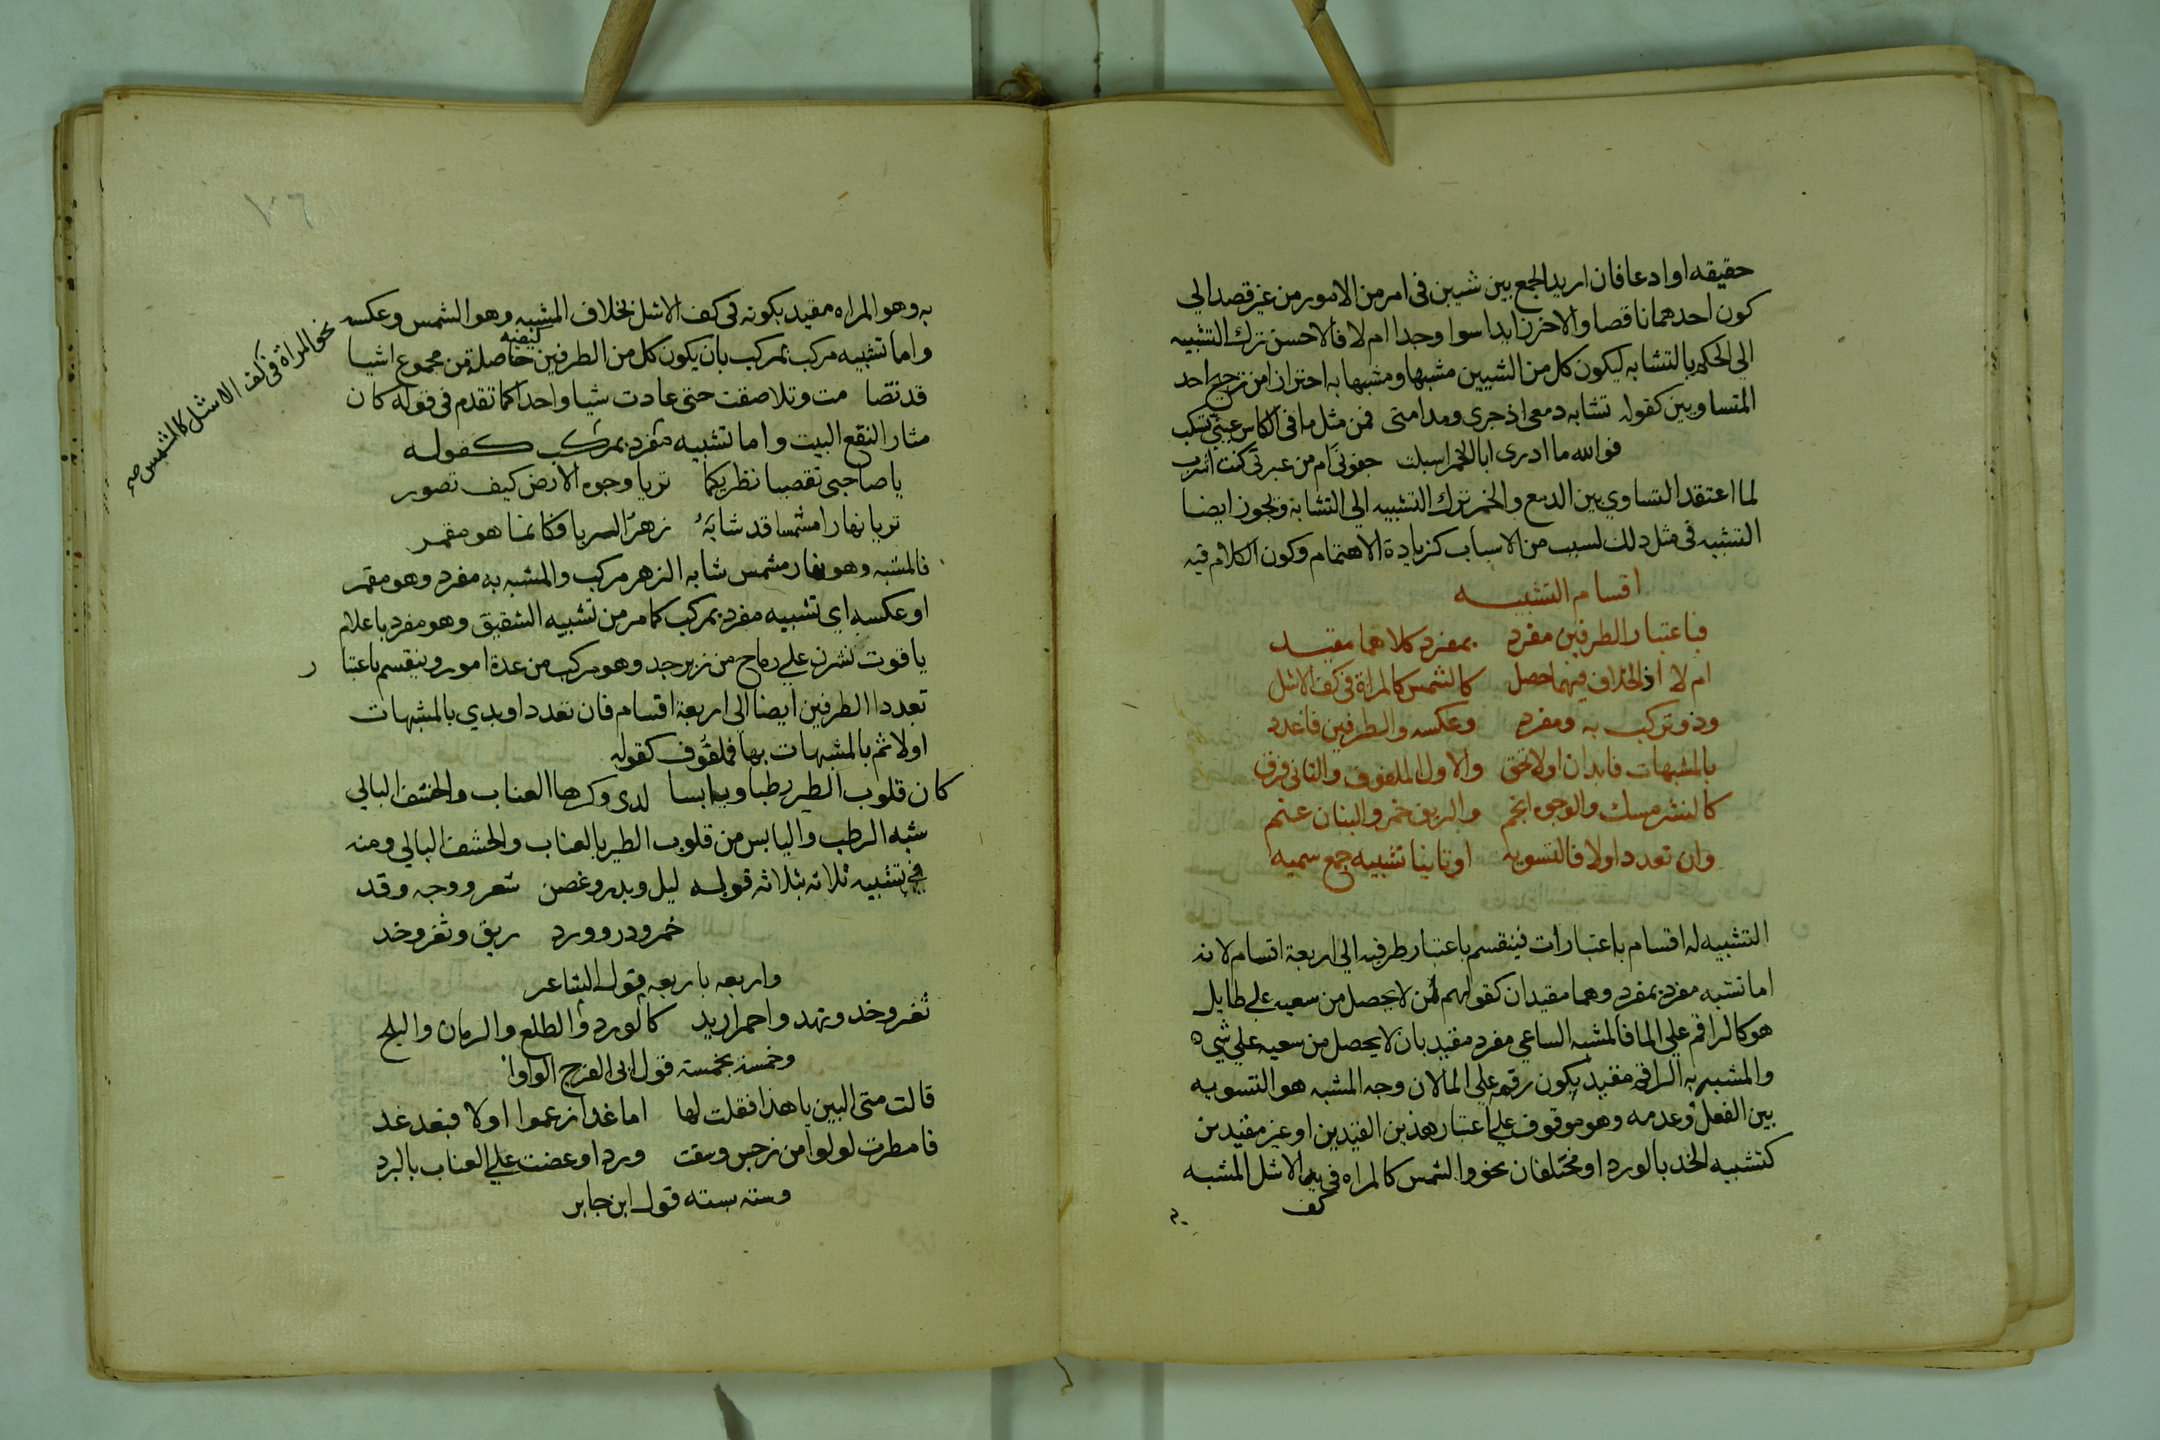 حقيقه او ادعا فان اريد الجمع بين شيين فى امر من الامور من غير قصد الي
كون احدهما ناقصا والاخر زايدا سوا وجدا ام لا فالاحسن ترك التشبيه
الي الحكم بالتشابه ليكون كل من الشيين مشبها ومشبها به احترازا من ترجيح احد
المتساويين كقوله تشابه دمعى اذ جرى ومدامتى فمن مثل ما فى الكاس عينى تسكب
فوالله ما ادرى ابا الخمر اسبلت جفونى ام من عبرتى كنت اشرب
لما اعتقد التساوي بين الدمع والخمر ترك التشبيه الي التشابه ويجوز ايضا
التشبيه فى مثل ذلك لسبب من الاسباب كزيادة الاهتمام وكون الكلام فيه
اقسام التشبيه
فباعتبار الطرفين مفرد بمفرد كلاهما مقيد
ام لا اذ الخلاف فيهما حصل كالشمس كالمراة فى كف الاشل
وذو تركب به ومفرد وعكسه والطرفين فاعدد
بالمشبهات فابدان اولا تحق والاول الملفوف والثانى فرق
كالنشر مسك والوجوه انجم والريق خمر والبنان عنم
وان تعدد اولا فالتسويه او ثانيا تشبيه جمع سميه
التشبيه له اقسام باعتبارات فينقسم باعتبار طرفيه الي اربعة اقسام لانه
اما تشبه مفرد بمفرد وهما مقيدان كقولهم لمن لا يحصل من سعيه علي طايل
هو كالراقم علي الما فالمشبه الساعي مفرد مقيد بان لا يحصل من سعيه علي شي
والمشبه به الراقم مقيد بكون رقمه علي الما لان وجه المشبه هو التسويه
بين الفعل وعدمه وهو موقوف علي اعتبار هذين القيدين او غير مقيدين
كتشبيه الخد بالورد او مختلفان نحو والشمس كالمراه فى يد الاشل المشبه
كف
٧٦
به وهو المراه مقيد بكونه فى كف الاشل بخلاف المشبه وهو الشمس وعكسه
نحو المراة فى كف الاشل كالشمس صح
كيفيه
واما تشبيه مركب بمركب بان يكون كل من الطرفين حاصلة من مجموع اشيا
قد تضامت وتلاصقت حتى عادت شيا واحدا كما تقدم فى قوله كان
مثار النقع البيت واما تشبيه مفرد بمركب كقوله
يا صاحبى تقصيا نظريكما تريا وجوه الارض كيف تصور
تريا نهارا مشمسا قد شابه زهر الربا فكانما هو مقمر
فالمشبه وهو نهار مشمس شابه الزهر مركب والمشبه به مفرد وهو مقمر
او عكسه اي تشبيه مفرد بمركب كما مر من تشبيه الشقيق وهو مفرد باعلام
ياقوت نشرن علي رماح من زبرجد وهو مركب من عدة امور وينقسم باعتبا ر
تعدد الطرفين ايضا الى اربعة اقسام فان تعددا وبدي بالمشبهات
اولا ثم بالمشبهات بها فملفوف كقوله
كان قلوب الطير رطبا ويابسا لدى وكرها العناب والحشف البالي
شبه الرطب واليابس من قلوب الطير بالعناب والحشف البالي ومنه
فى تشبيه ثلاثه بثلاثه قوله ليل وبدر وغصن شعر ووجه وقد
خمر ودر وورد ريق وثغر وخد
واربعه باربعه قول الشاعر
ثغر وخد ونهد واحمرار يد كالورد والطلع والرمان والبلح
وخمسة بخمسة قول ابى الفرج الواوا
قالت متى البين يا هذا فقلت لها اما غدا زعموا اولا فبعد غد
فامطرت لولوا من نرجس وسقت وردا وعضت علي العناب بالبرد
وسته بسته قول ابن جابر